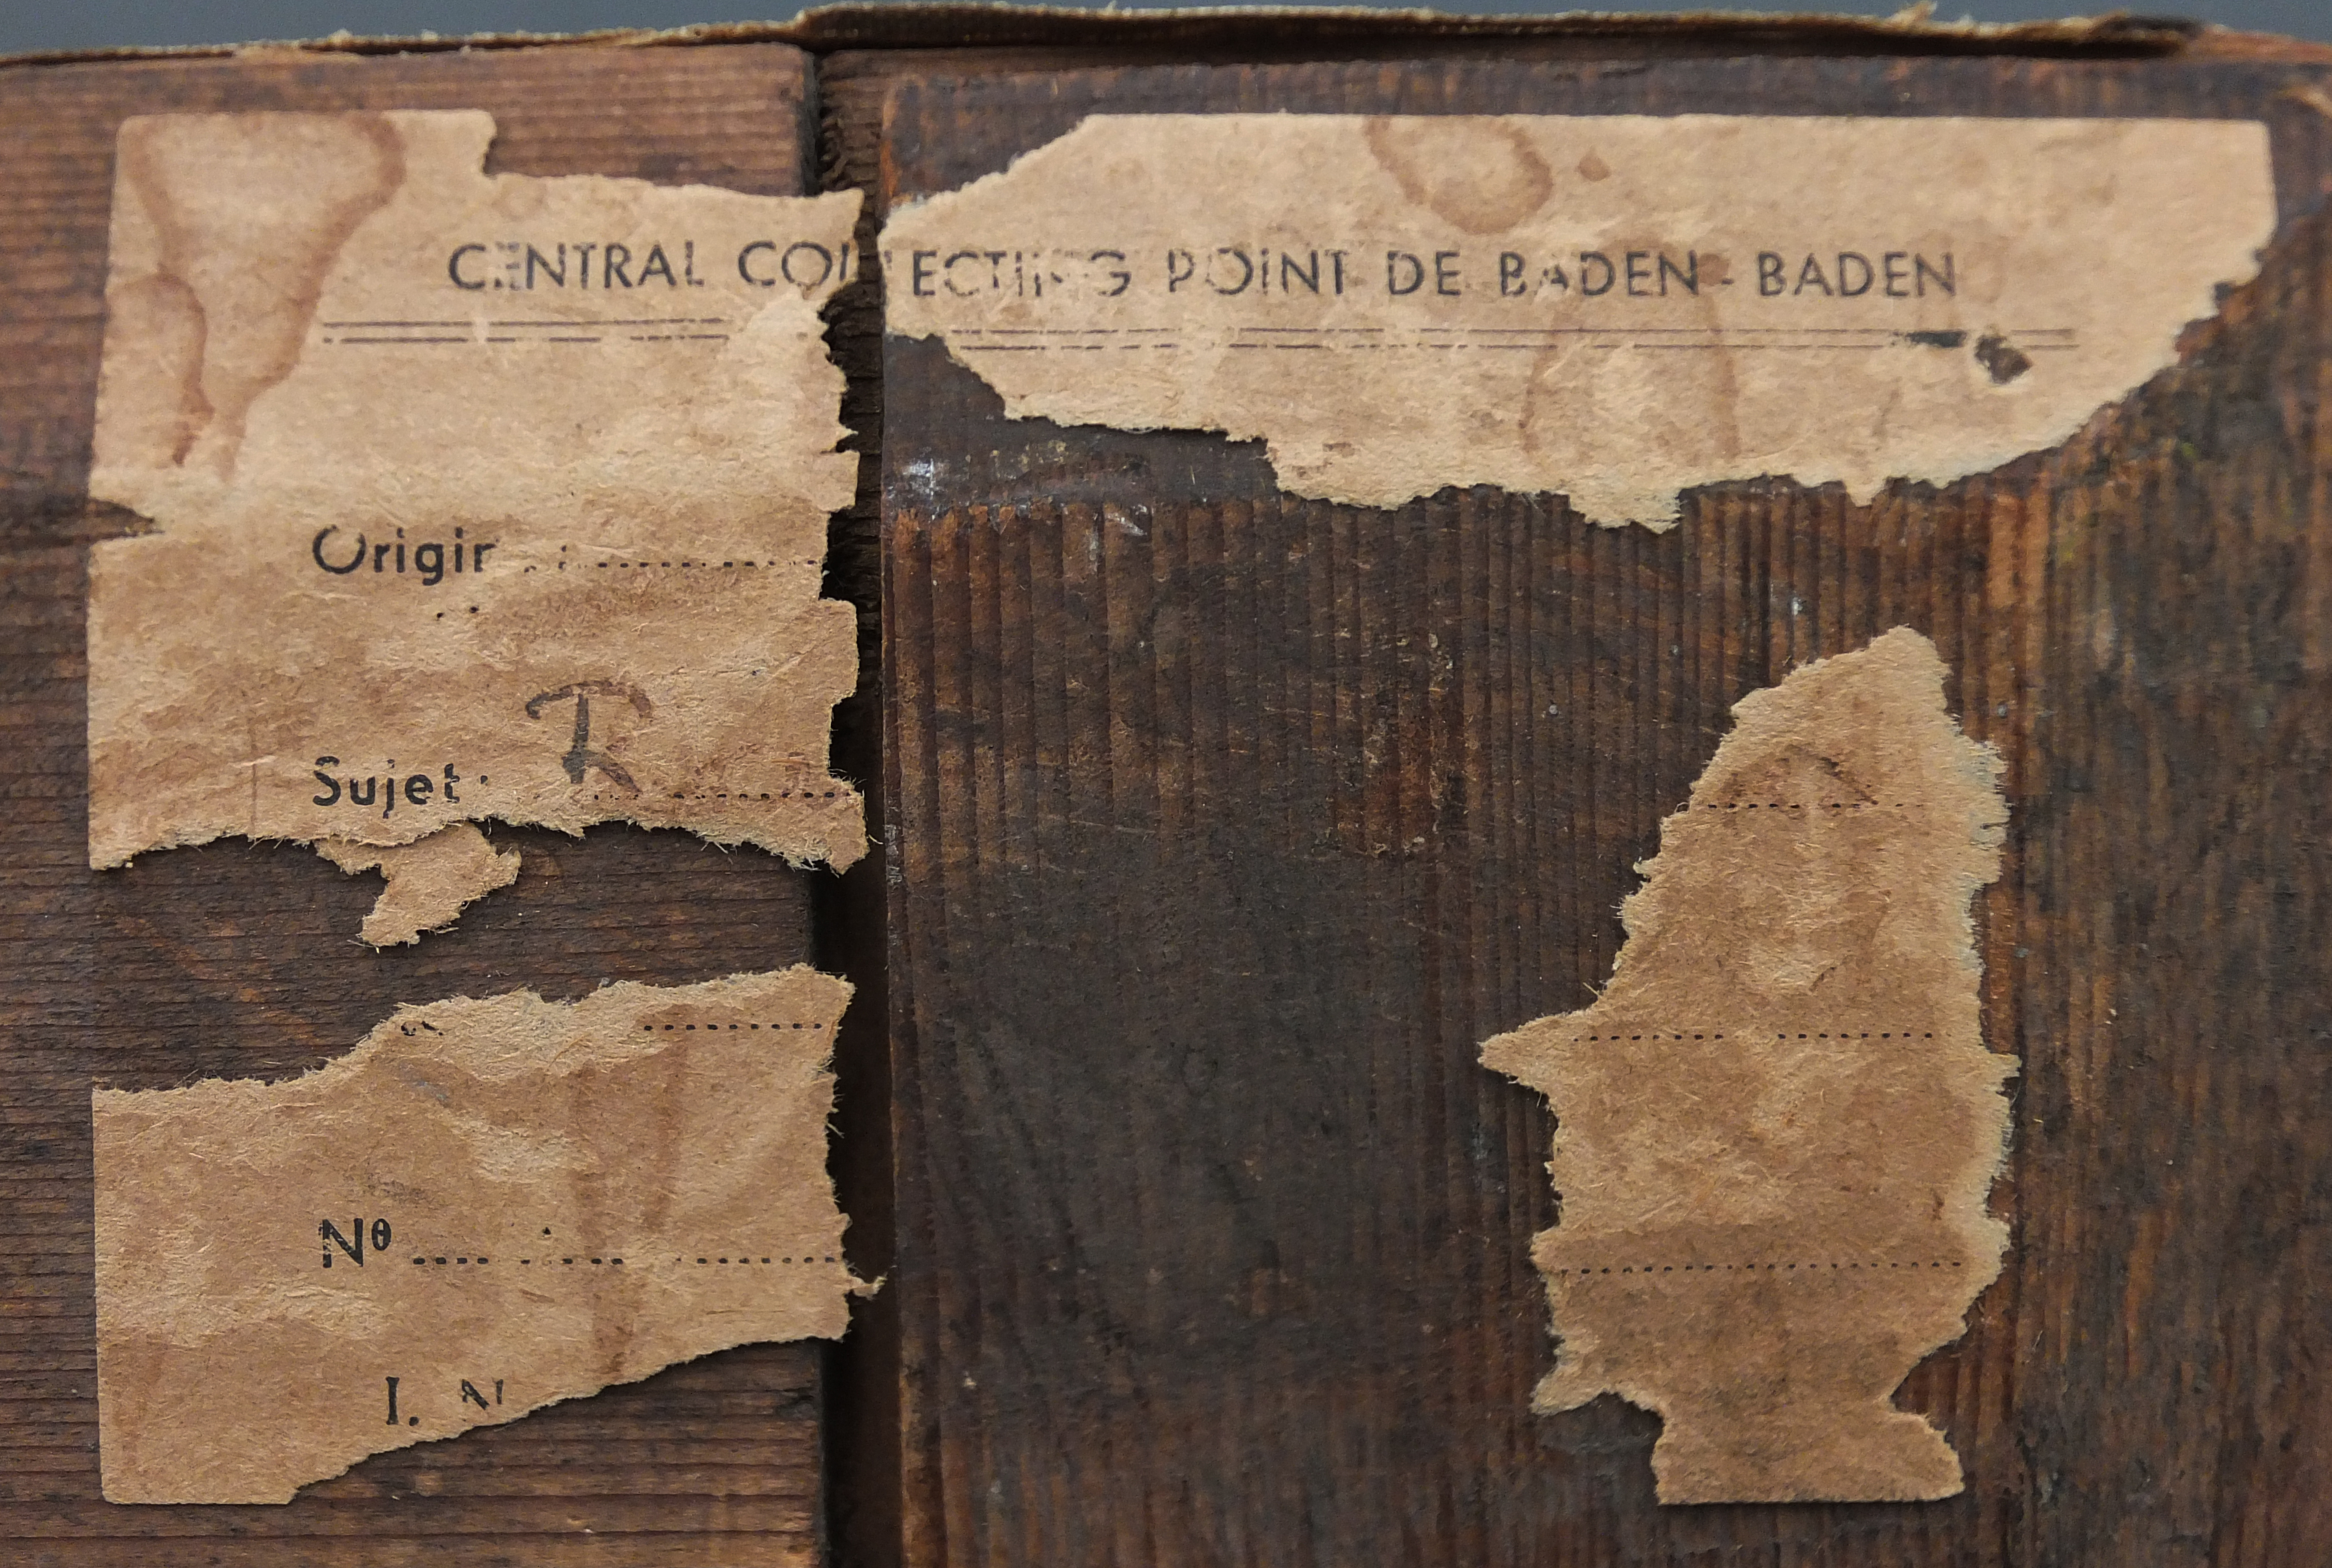 CENTRAL COLLECTING POINT DE BADEN-BADEN
Origin
Sujet: R
Nº
I. N